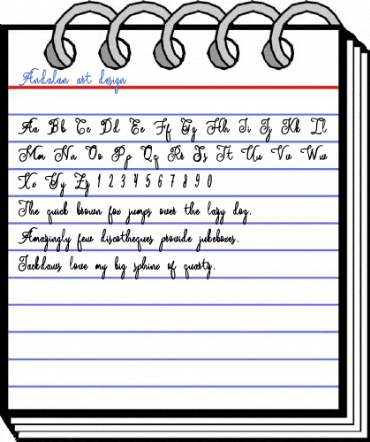 Andalan art design
Aa Bb Cc Dd Ee Ff Gg Hh Ii Jj Kk Ll
Mm Nn Oo Pp Qq Rr Ss Tt Uu Vv Ww
Xx Yy Zz 1 2 3 4 5 6 7 8 9 0
The quick brown fox jumps over the lazy dog.
Amazingly few discotheques provide jukeboxes.
Jackdaws love my big sphinx of quartz.